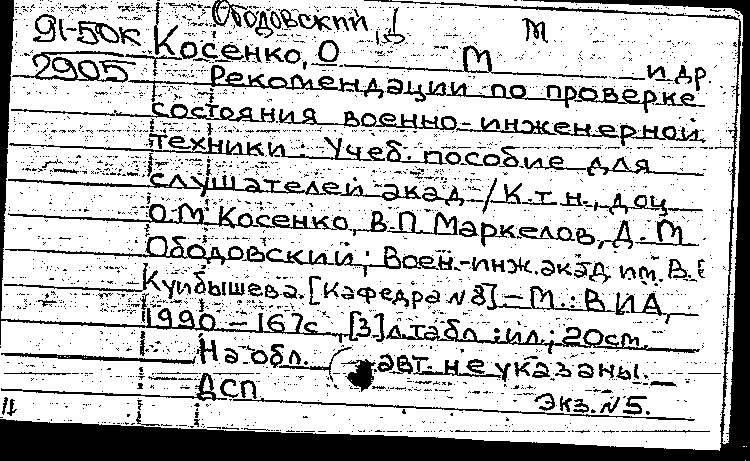 Ободовский, М
91-50к Косенко, О М и др
2905 Рекомендации по проверке
состояния военно-инженерной
техники. Учеб. пособие для
слушателей акад / К.т.н., доц
О.М Косенко, В.П. Маркелов, Д.М
Ободовский; Воен.-инж. акад им. В.В
Куйбышева. [Кафедра N 8] - М.: ВИА,
1990 - 167с, [3] л. табл: ил; 20см.
На обл. авт. не указаны.
ДСП Экз. N5.